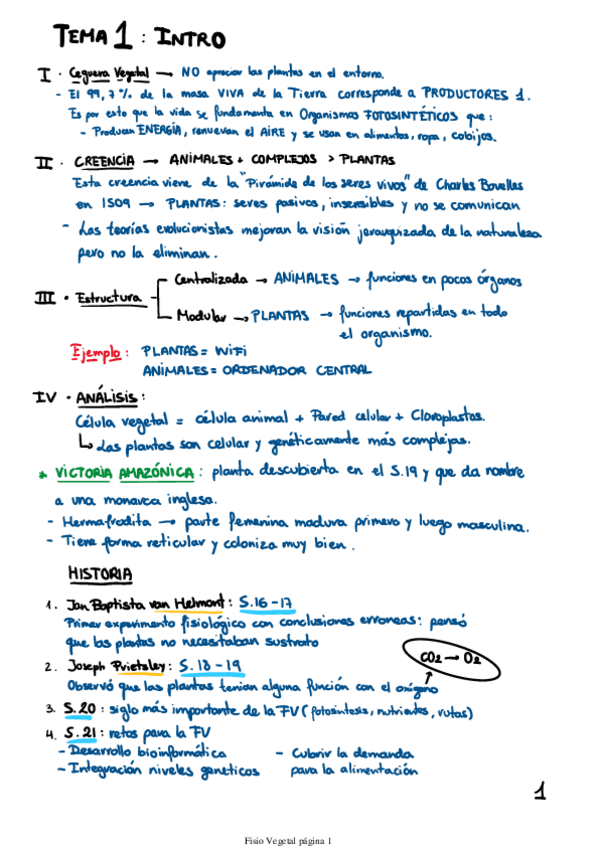 TEMA 1 : INTRO
I · Ceguera Vegetal → NO apreciar las plantas en el entorno.
- El 99,7% de la masa VIVA de la Tierra corresponde a PRODUCTORES 1.
Es por esto que la vida se fundamenta en Organismos FOTOSINTÉTICOS que:
- Producen ENERGÍA, renuevan el AIRE y se usan en alimentos, ropa, cobijos.
II · CREENCIA → ANIMALES + COMPLEJOS > PLANTAS
Esta creencia viene de la "Pirámide de los seres vivos" de Charles Bovelles
en 1509 → PLANTAS: seres pasivos, insensibles y no se comunican
- Las teorías evolucionistas mejoran la visión jerarquizada de la naturaleza
pero no la eliminan.
III · Estructura
Centralizada → ANIMALES → funciones en pocos órganos
Modular → PLANTAS → funciones repartidas en todo
el organismo.
Ejemplo: PLANTAS = WiFi
ANIMALES = ORDENADOR CENTRAL
IV · ANÁLISIS:
Célula vegetal = célula animal + Pared celular + Cloroplastos.
↳ Las plantas son celular y genéticamente más complejas.
* VICTORIA AMAZÓNICA: planta descubierta en el S.19 y que da nombre
a una monarca inglesa.
- Hermafrodita → parte femenina madura primero y luego masculina.
- Tiene forma reticular y coloniza muy bien.
HISTORIA
1. Jan Baptista van Helmont: S.16-17
Primer experimento fisiológico con conclusiones erroneas: pensó
que las plantas no necesitaban sustrato
CO2 → O2
2. Joseph Prietsley: S.18-19
Observó que las plantas tenían alguna función con el oxígeno
3. S.20: siglo más importante de la FV (fotosíntesis, nutrientes, rutas)
4. S.21: retos para la FV
- Desarrollo bioinformática
- Cubrir la demanda
- Integración niveles geneticos
para la alimentación
1
Fisio Vegetal página 1